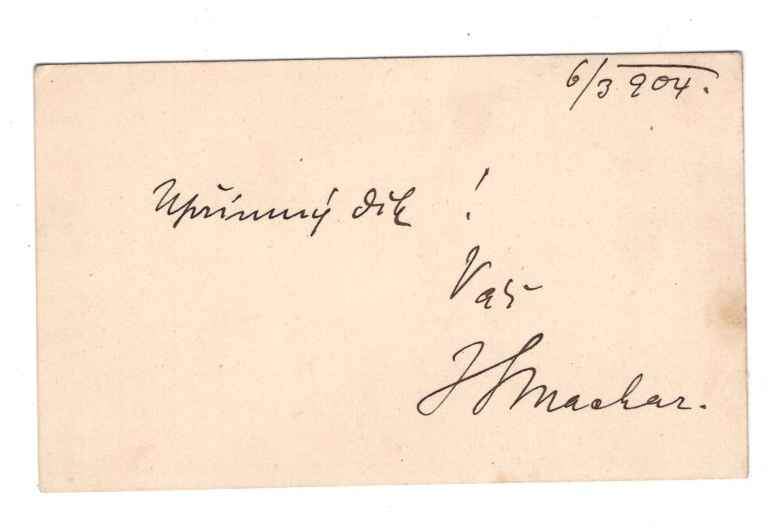 6/3 904.
Upřímný dík !
Váš
JSMachar.